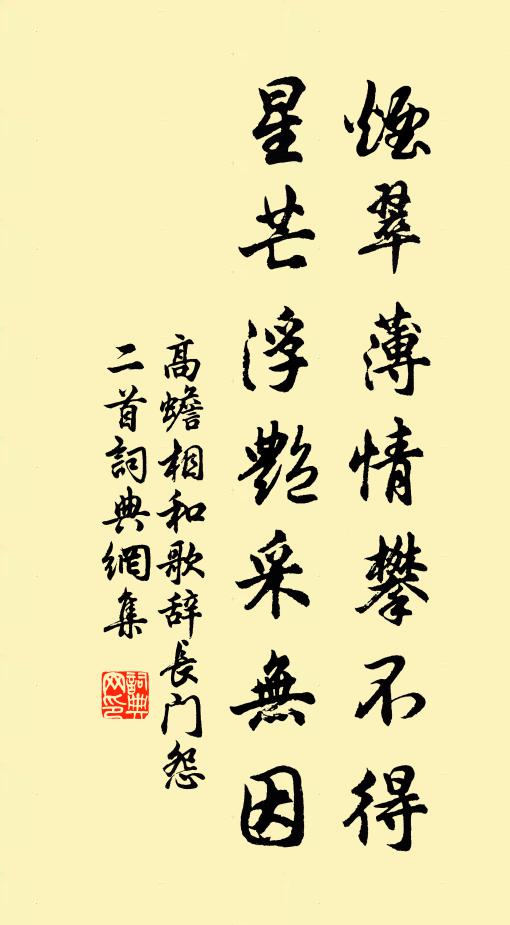 煙翠薄情攀不得
星芒浮艷采無因
高蟾相和歌辞長门怨
二首詞典網集
詞典网印